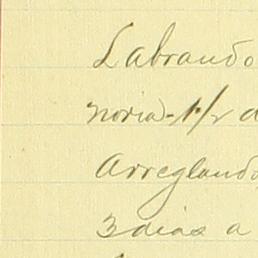 Labrando
noria - 1/2 d
Arreglando
3 dias a